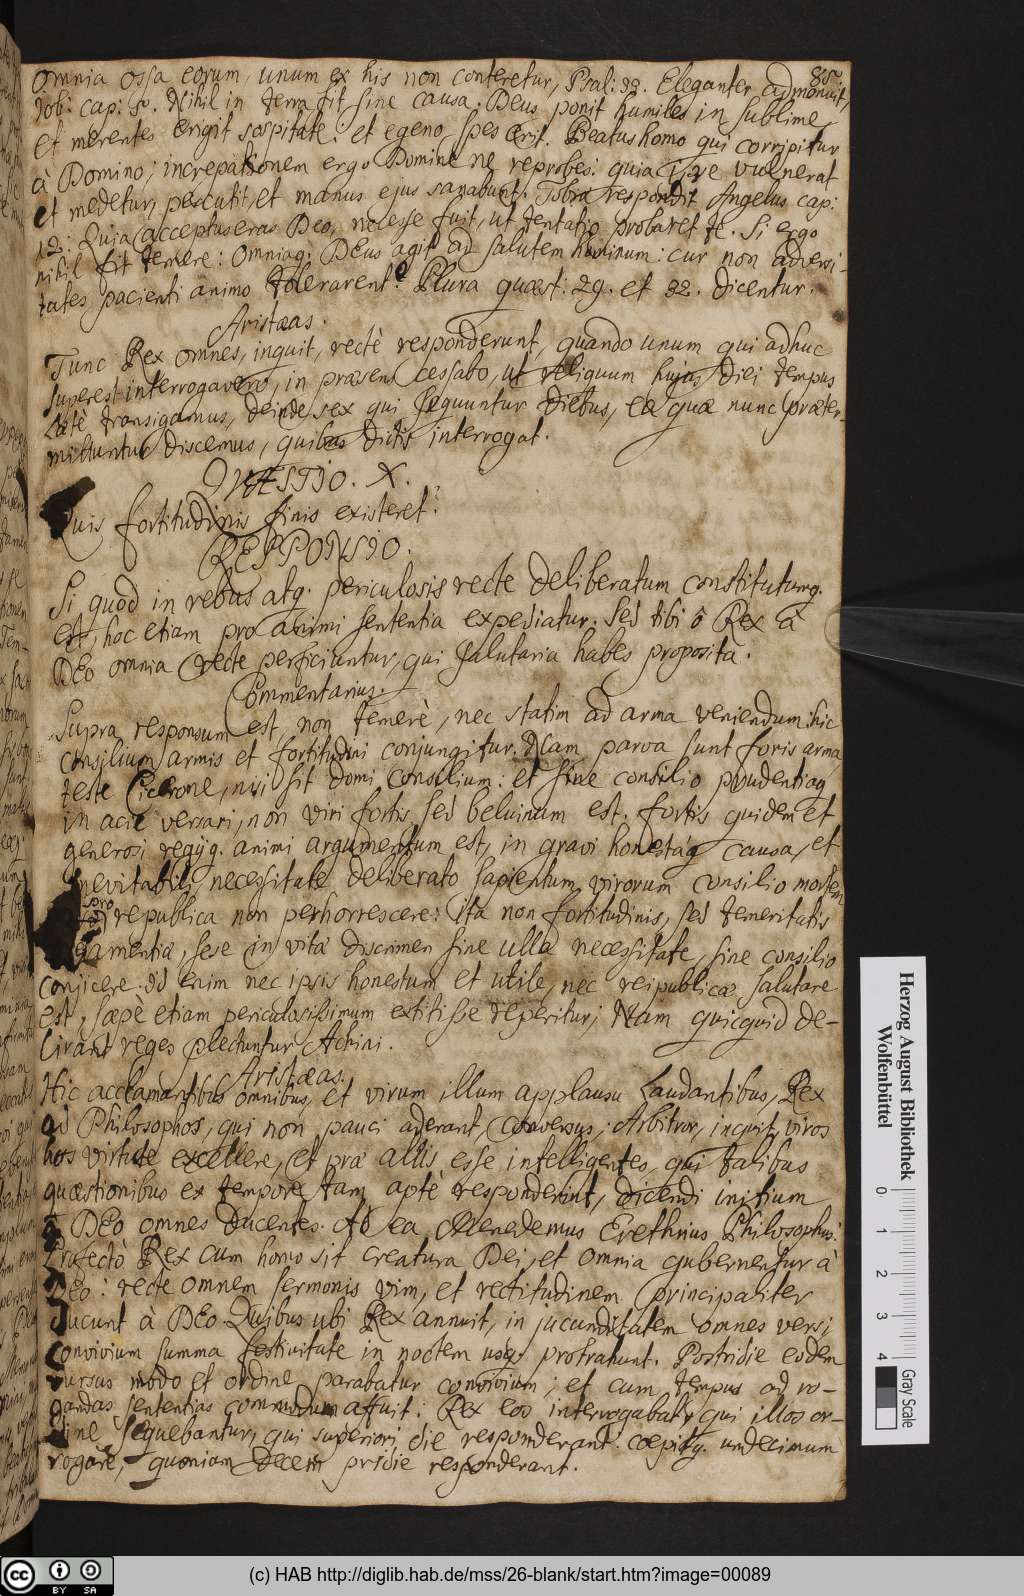 85.
Omnia ossa eorum, unum ex his non conteretur, Psal: 33. Eleganter admonuit,
Job: cap: 5. Nihil in terra fit sine causa. Deus ponit humiles in sublime
et merentes erigit sospitate: et egeno spes erit. Beatus homo qui corripitur
à Domino; increpationem ergo Domini ne reprobes: quia ipse vulnerat
et medetur, percutit, et manus ejus sanabunt. Tobiæ respondit Angelus cap:
12: Quia acceptus eras Deo, necesse fuit, ut tentatio probaret te. Si ergo
nihil fit temere: omniaq. Deus agit ad salutem hominum: cur non adversi-
tates pacienti animo tolerarent? Plura quæst: 29. et 32. dicentur.
Aristæas.
Tunc Rex omnes, inquit, rectè responderunt, quando unum qui adhuc
superest interrogavero, in præsens cessabo, ut reliquum hujus diei tempus
Lætè transigamus, deinde sex qui sequuntur diebus, ea quæ nunc præter-
mittuntur discemus, quibus dictis interrogat.
QVÆSTIO. X.
Quis fortitudinis finis existeret?
RESPONSIO.
Si quod in rebus atq. periculosis recte deliberatum constitutumq.
est, hoc etiam pro animi sententia expediatur. Sed tibi ô Rex à
DEo omnia recte perficiuntur, qui salutaria habes proposita.
Commentarius.
Supra responsum est, non temerè, nec statim ad arma veniendum: hic
consilium armis et fortitudini conjungitur. Nam parva sunt foris arma,
teste Cicerone, nisi sit domi consilium: et sine consilio prudentiaq
in acie versari, non viri fortis, sed beluinum est. fortis quidem et
generosi regijq. animi argumentum est, in gravi honestaq causa, et
inevitabili necessitate deliberato sapientum virorum consilio mortem
pro republica non perhorrescere: ita non fortitudinis, sed temeritatis
amentiæ, sese in vitæ discrimen sine ulla necessitate, sine consilio
conjicere: id enim nec ipsis honestum et utile, nec reipublicæ salutare
est, sæpè etiam periculosissimum extitisse reperitur; Nam quicquid de-
lirant reges plectuntur Achivi.
Aristæas.
Hic acclamantibus omnibus, et virum illum applausu Laudantibus, Rex
ad Philosophos, qui non pauci aderant, conversus; Arbitror, inquit, viros
hos virtute excellere, et præ aliis esse intelligentes, qui talibus
quæstionibus ex tempore tam aptè responderint, dicendi initium
à DEo omnes ducentes. Ad ea Menedemus Erethrius Philosophus:
Profectò Rex cum homo sit creatura Dei, et omnia gubernentur à
DEo: recte omnem sermonis vim, et rectitudinem principaliter
ducunt à DEo Quibus ubi Rex annuit, in jucunditatem omnes versi
convivium summa festivitate in noctem usq. protrahunt. Postridie eodem
rursus modo et ordine parabatur convivium; et cum tempus ad ro-
gandas sententias commodum affuit: Rex eos interrogabat, qui illos or-
dine sequebantur, qui superiori die responderant: cœpitq. undecimum
rogare, quoniam decem pridie responderant.
Herzog August Bibliothek
Wolfenbüttel
0 1 2 3 4
Gray Scale
cc BY SA
(c) HAB http://diglib.hab.de/mss/26-blank/start.htm?image=00089